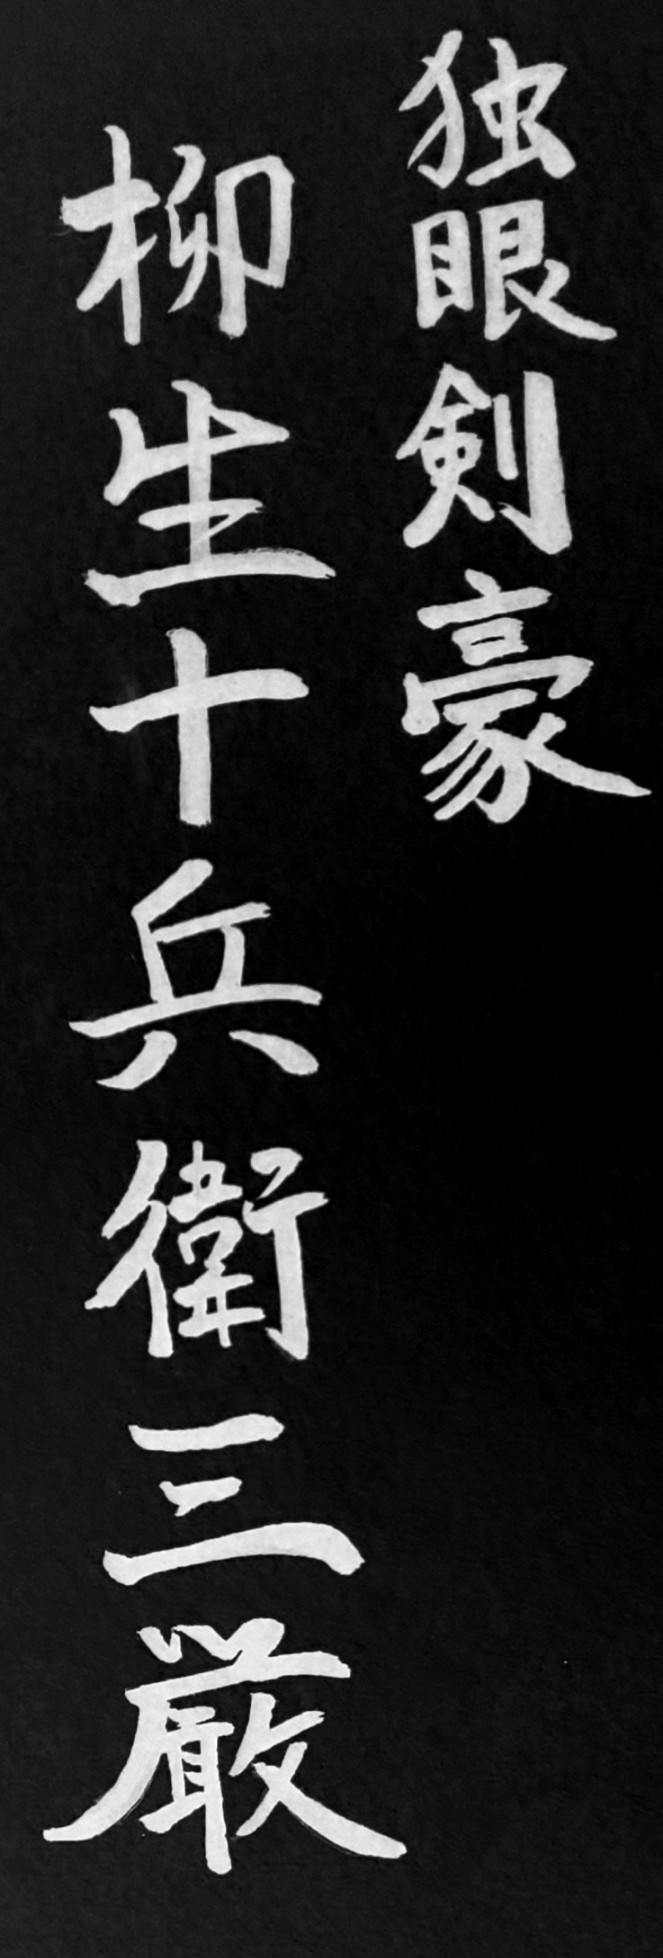 独眼剣豪
柳生十兵衛三厳